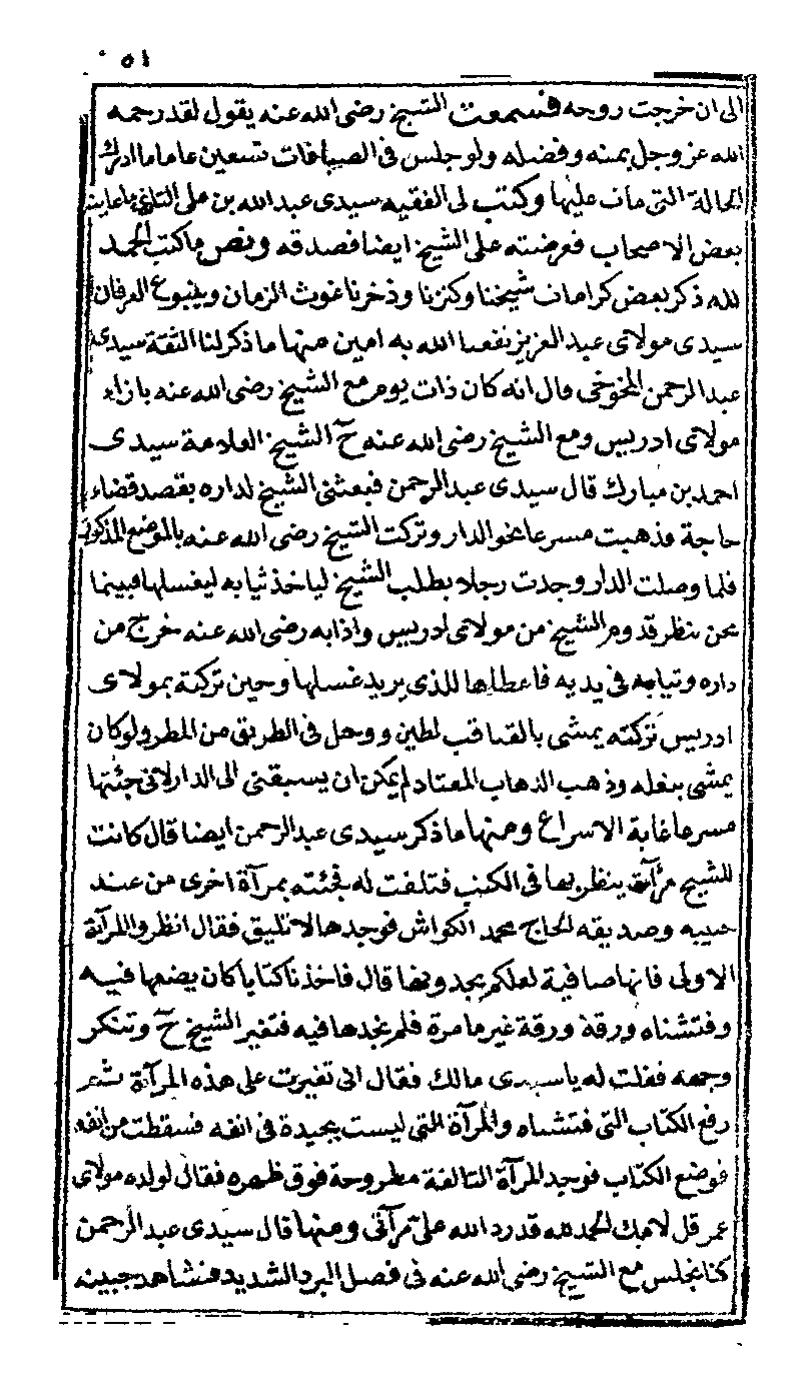 ٥١
الى ان خرجت روحه فسمعت الشيخ رضى الله عنه يقول لقد رحمه
الله عز وجل بمنه وفضله ولو جلس فى الصيباغات تسعين عاما ما ادرك
الحالة التى مات عليها وكتب لى الفقيه سيدى عبد الله بن على التازى ما عاينه
بعض الاصحاب فعرضته على الشيخ ايضا فصدقه ونص ما كتب الحمد
لله ذكر بعض كرامات شيخنا وكنزنا وذخرنا غوث الزمان وينبوع العرفان
سيدى مولاى عبد العزيز نفعنا الله به امين منها ما ذكر لنا الثقة سيدى
عبد الرحمن المخوخى قال انه كان ذات يوم مع الشيخ رضى الله عنه بازاء
مولاى ادريس ومع الشيخ رضى الله عنه حٓ الشيخ العلامة سيدى
احمد بن مبارك قال سيدى عبد الرحمن فبعثنى الشيخ لداره بقصد قضاء
حاجة فذهبت مسرعا نحو الدار وتركت الشيخ رضى الله عنه بالموضع المذكور
فلما وصلت الدار وجدت رجلا يطلب الشيخ لياخذ ثيابه ليغسلها فبينما
نحن ننظر قدوم الشيخ من مولاى ادريس واذا به رضى الله عنه خرج من
داره وثيابه فى يديه فاعطاها للذى يريد غسلها وحين تركته بمولاى
ادريس تركته يمشى بالقباقب لطين ووحل فى الطريق من المطر ولو كان
يمشى بنعله وذهب الذهاب المعتاد لم يمكن ان يسبقنى الى الدار لانى جئتها
مسرعا غاية الاسراع ومنها ما ذكر سيدى عبد الرحمن ايضا قال كانت
للشيخ مرآة ينظر بها فى الكتب فتلفت له فجئته بمرآة اخرى من عند
حبيبه وصديقه الحاج محمد الكواش فوجدها لا تليق فقال انظروا المرآة
الاولى فانها صافية لعلكم تجدونها قال فاخذنا كتابا كان يضعها فيه
وفتشناه ورقة ورقة غير ما مرة فلم نجدها فيه فتغير الشيخ حٓ وتنكر
وجهه فقلت له يا سيدى مالك فقال انى تغيرت على هذه المرآة ثم
رفع الكتاب التى فتشناه والمرآة التى ليست بجيدة فى انفه فسقطت من انفه
فوضع الكتاب فوجد المرآة التالفة مطروحة فوق ظهره فقال لولده مولاى
عمر قل لامك الحمد لله قد رد الله على مرآتى ومنها قال سيدى عبد الرحمن
كنا نجلس مع الشيخ رضى الله عنه فى فصل البرد الشديد فنشاهد جبينه